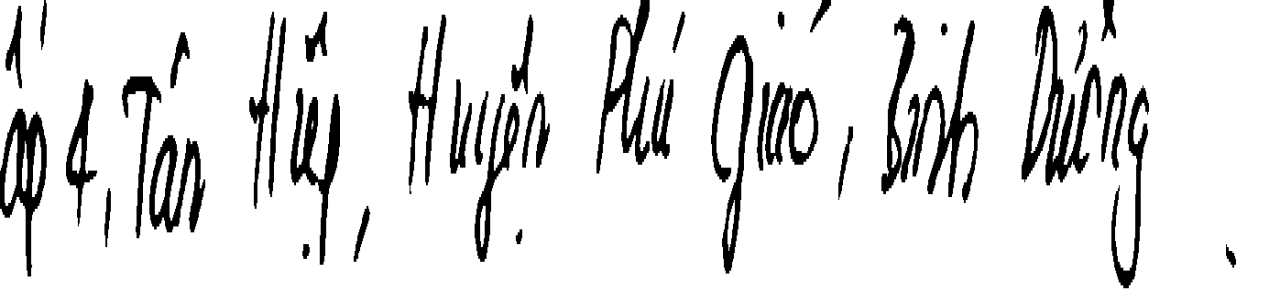 ấp 4, Tân Hiệp, Huyện Phú Giáo, Bình Dương.